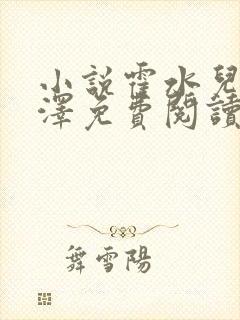 小說霍水兒
澤免費閱讀
舞雪陽